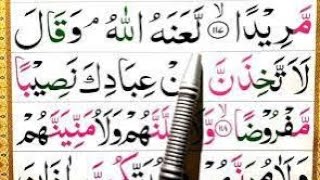 مَّرِيدًا ﴿١١٧﴾ لَّعَنَهُ اللّٰهُ ۘ وَقَالَ
لَاَتَّخِذَنَّ مِنْ عِبَادِكَ نَصِيْبًا
مَّفْرُوْضًا ﴿١١٨﴾ وَّلَاُضِلَّنَّهُمْ وَلَاُمَنِّيَنَّهُمْ